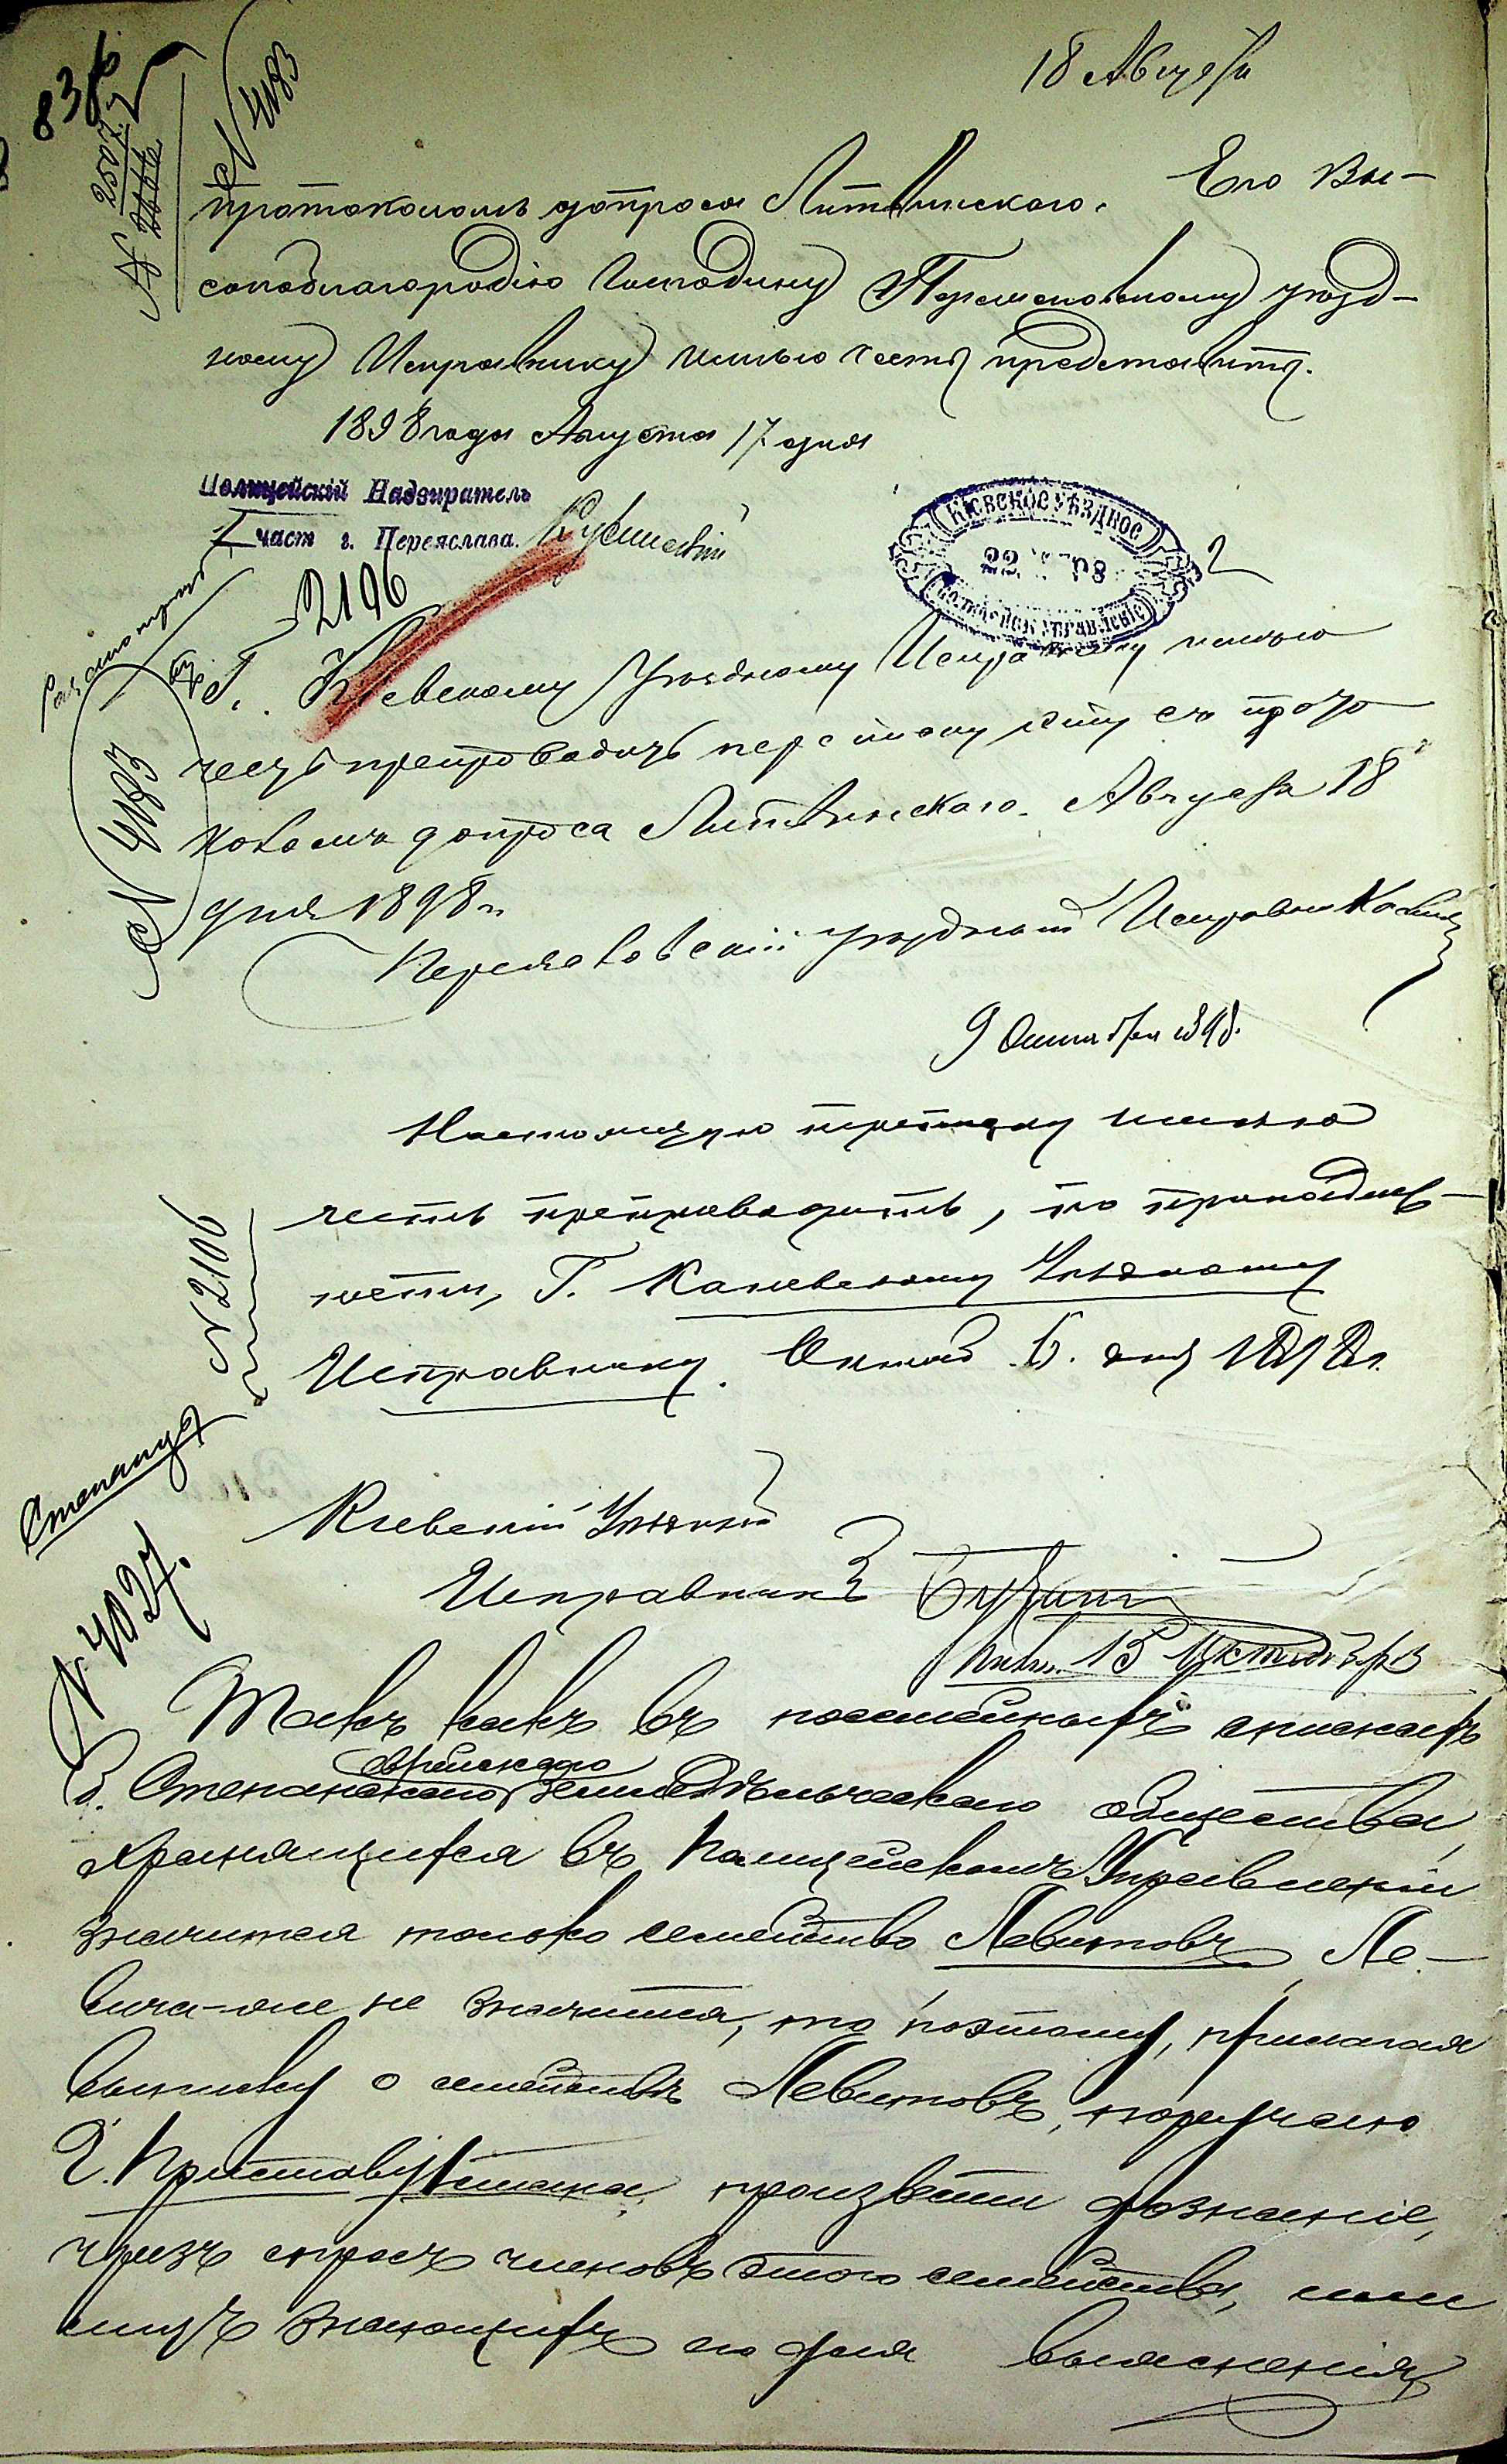 83
18 Августа
№ 4183
протоколомъ допроса Литвинскаго. Его Вы-
сокоблагородію Господину Переяславскому уѣзд-
ному Исправнику имѣю честь представить.
1898 года Августа 17 дня
Полицейскій Надзиратель
1 част г. Переяслава.
КІЕВСКОЕ УѢЗДНОЕ
22 98
ПОЛИЦЕЙСК УПРАВЛЕНІЕ
2196
Г. Кіевскому Уѣздному Исправнику имѣю
честь препроводить переписку сію съ прото
коломъ допроса Литвинскаго. Августа 18
дня 1898 г.
№ 4183
Переяславскій уѣздный Исправникъ
9 Октября 1898.
Настоящую переписку имѣю
честь препроводить, по принадлеж-
ности, Г. Каневскому Уѣздному
Исправнику. Октяб 6. дня 1898 г.
№ 2106
Степанцы
№ 4027.
Кіевскій Уѣздный
Исправникъ
15 Октября
Такъ какъ въ посемейныхъ спискахъ
еврейскаго
Степанскаго земледѣльческаго общества,
хранящихся въ Полицейскомъ Управленіи
значится только семейство Левитовъ, Ле-
вича-же не значится, то поэтому, прилагая
выписку о семействѣ Левитовъ, поручаю
Г. Приставу 1 стана, произвести дознаніе,
чрезъ спросъ членовъ этого семейства, или
лицъ знающихъ его для выясненія